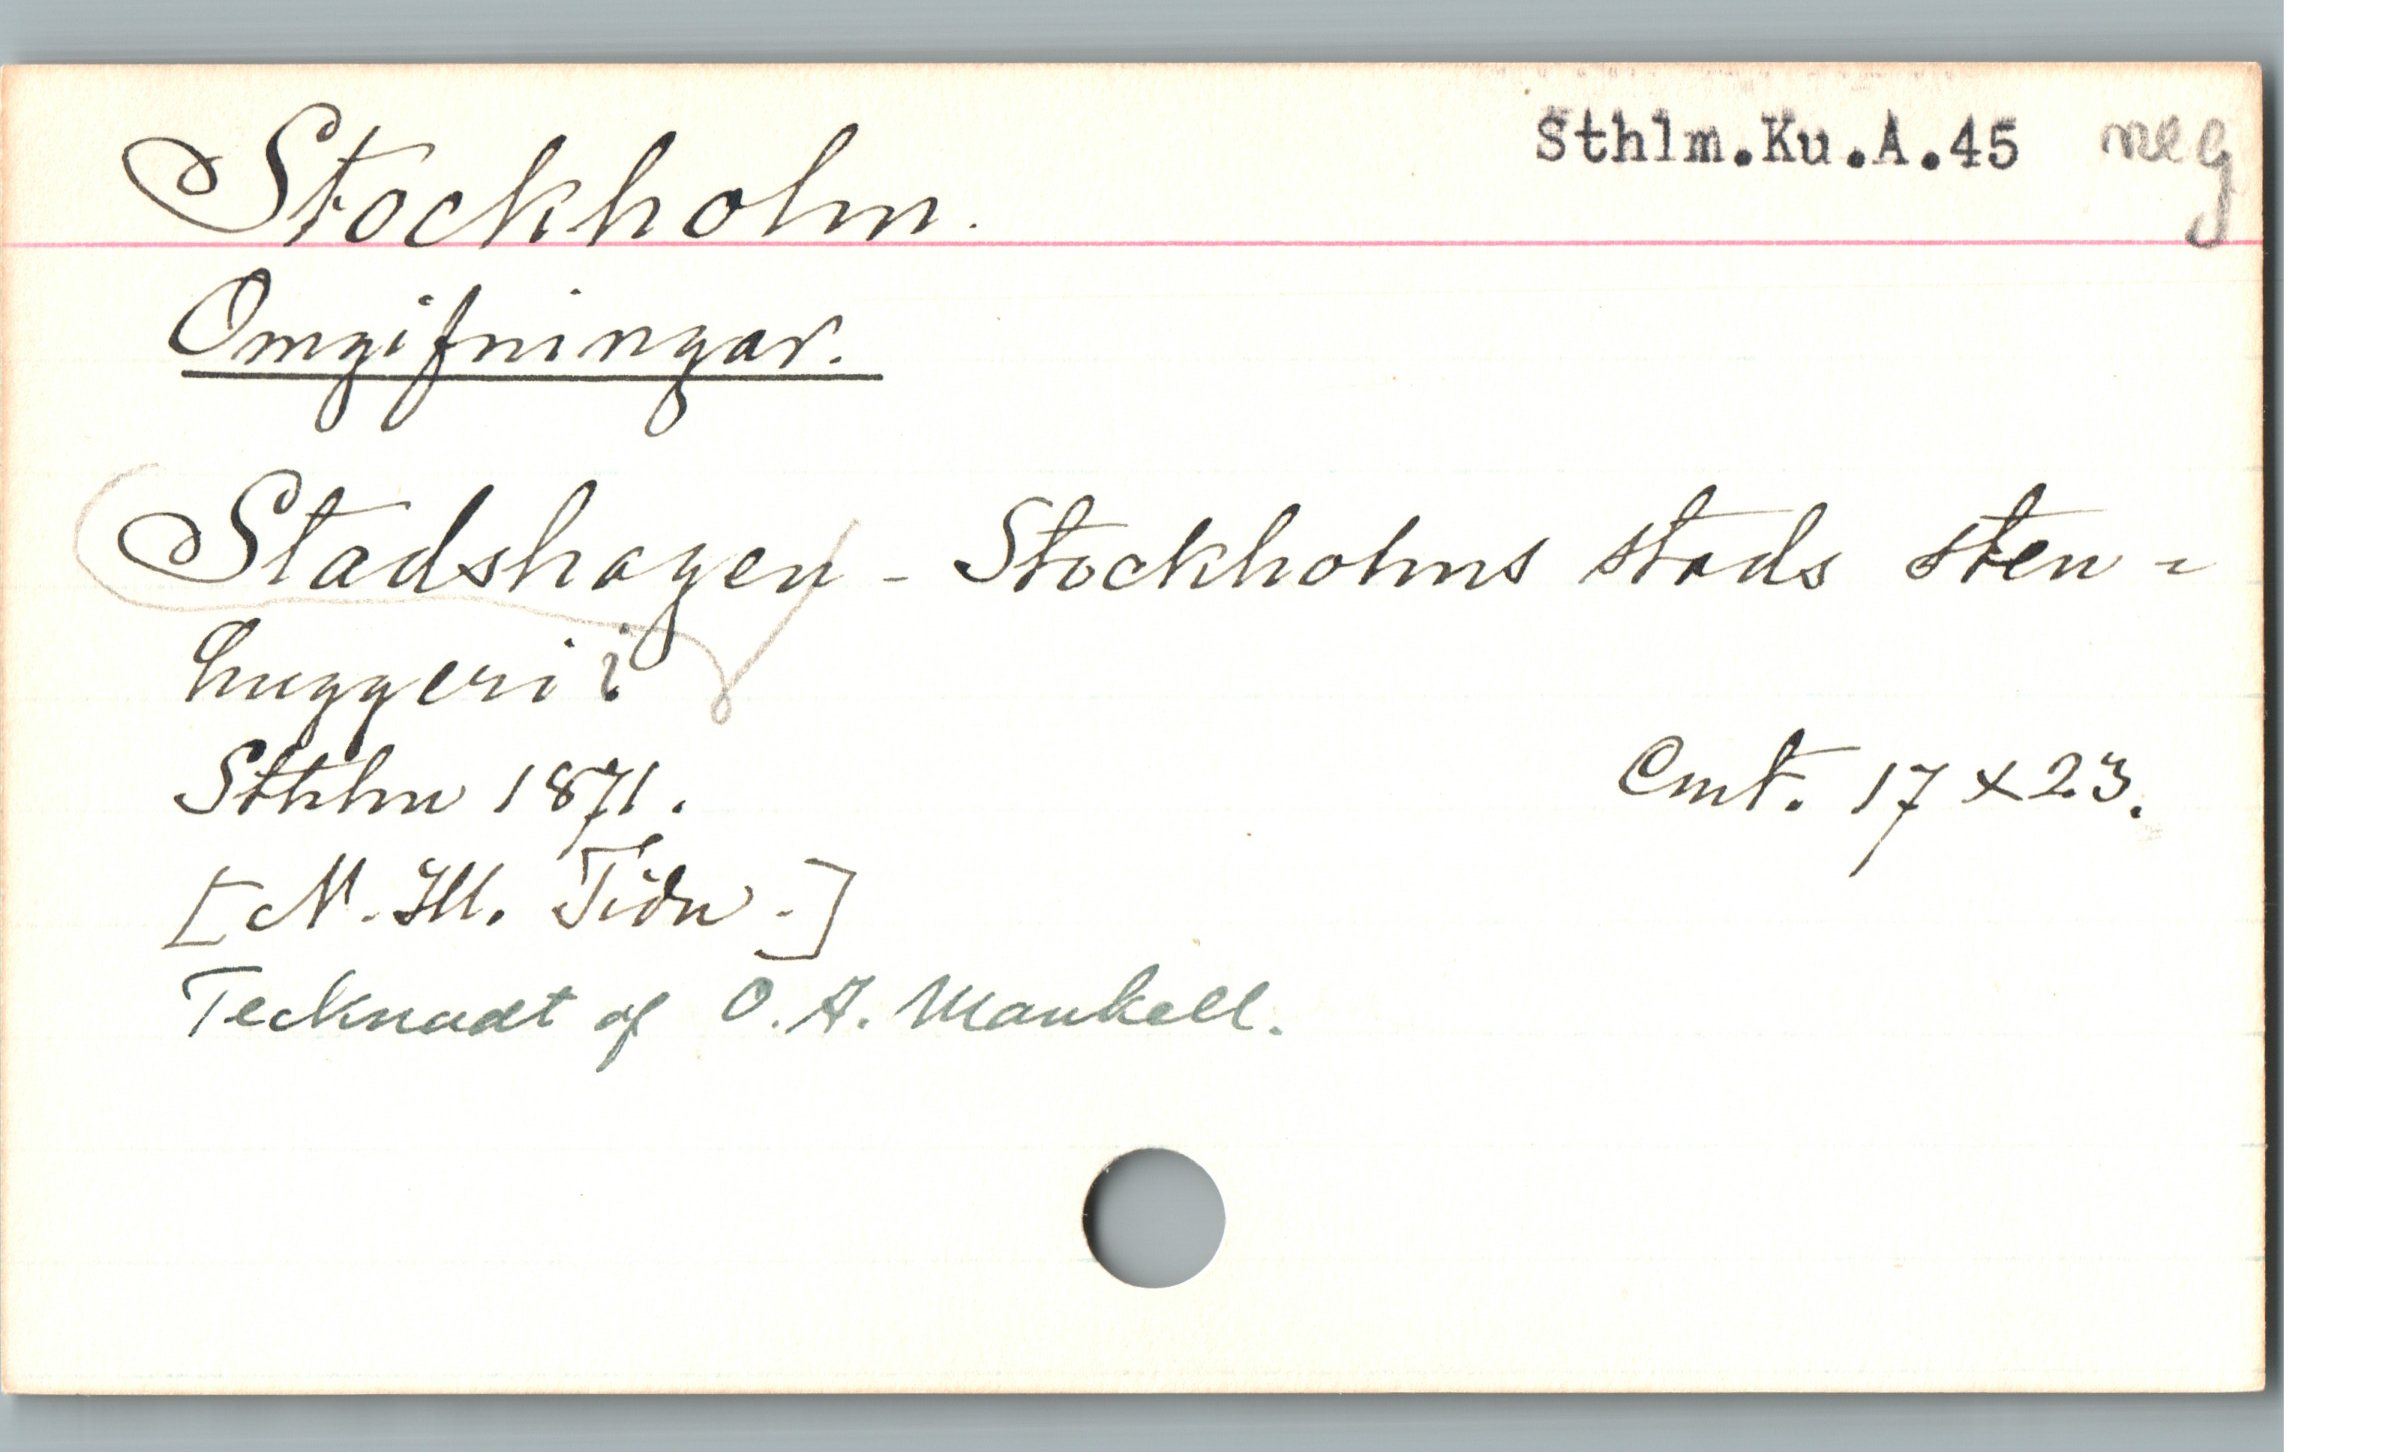 Stockholm. Sthlm.Ku.A.45 neg
Omgifningar.
Stadshagen - Stockholms stads sten-
huggeri i
Sthlm 1871. Cmt. 17 x 23.
[N. Ill. Tidn.]
Tecknadt af O. A. Mankell.